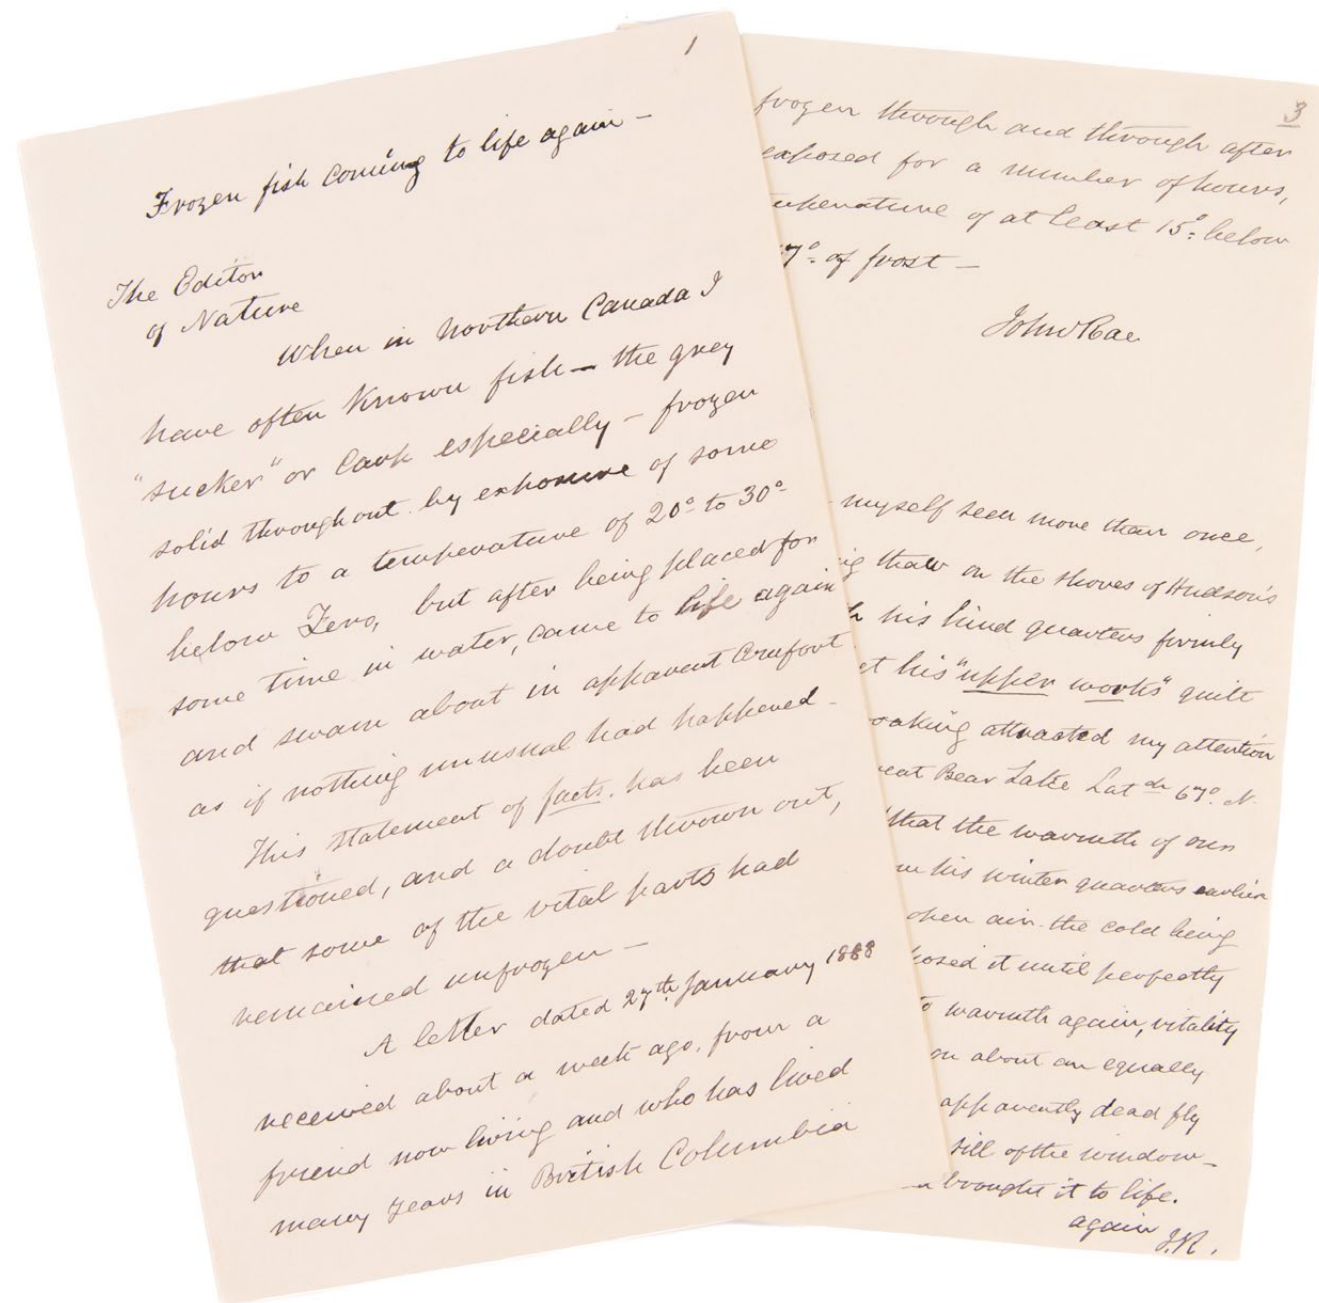 1
Frozen fish coming to life again —
The Editor
of Nature
When in northern Canada I
have often known fish — the grey
"sucker" or Carp especially — frozen
solid throughout by exposure of some
hours to a temperature of 20° to 30°
below Zero, but after being placed for
some time in water, came to life again
and swam about in apparent comfort
as if nothing unusual had happened —
This statement of facts has been
questioned, and a doubt thrown out,
that some of the vital parts had
remained unfrozen —
A letter dated 27th January 1888
received about a week ago, from a
friend now living and who has lived
many years in British Columbia
3
frozen through and through after
exposed for a number of hours,
temperature of at least 15° below
7° of frost —
John Rae
myself seen more than once,
thaw on the shores of Hudson's
his hind quarters firmly
his "upper works" quite
attracted my attention
Bear Lake Latde 67° N.
that the warmth of our
his winter quarters earlier
open air. the cold being
it until perfectly
to warmth again, vitality
about an equally
apparently dead fly
sill of the window —
brought it to life.
again J.R.